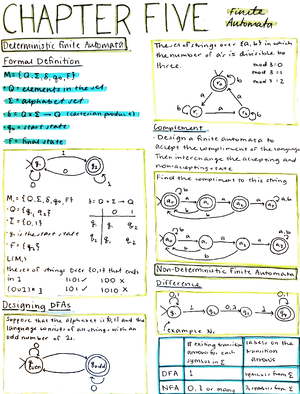 CHAPTER FIVE
Finite
Automata
Deterministic Finite Automata
Formal Definition
M = (Q, Σ, δ, q₀, F)
Q = elements in the set
Σ = alphabet set
δ: Q × Σ → Q (cartesian product)
q₀ = start state
F = final state
0
1
q₁
q₂
0
M₁ = {Q, Σ, δ, q₀, F}
δ: Q × Σ → Q
· Q = {q₁, q₂}
0 1
· Σ = {0,1}
q₁ q₁ q₂
· q₁ is the start state
q₂ q₁ q₂
· F = {q₂}
L(M₁)
the set of strings over {0,1} that ends
in 1
1101 ✓ 100 x
(0∪1)*1
101 ✓ 1010 x
Designing DFAs
Suppose that the alphabet is {0,1} and the
language consists of all strings with an
odd number of 1s.
0
1
0
q even
q odd
1
The set of strings over {a,b} in which
the number of a's is divisible by
three.
mod 3 = 0
mod 3 = 1
mod 3 = 2
Complement
· Design a finite automata to
accept the compliment of the language
Then interchange the accepting and
non-accepting state
Find the compliment to this string
Non-Deterministic Finite Automata
Difference
0,1
0,1
q₁ 1 q₂ 0,ε q₃ 1 q₄
example N₁
# exiting transition
arrows for each
symbol in Σ
labels on the
transition
arrows
DFA
1
symbols from Σ
NFA
0, 1 or many